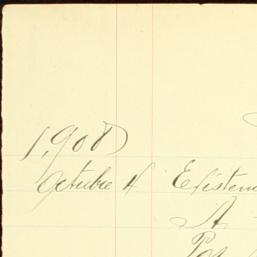 1,908
Octubre 4 Existen
A
Por